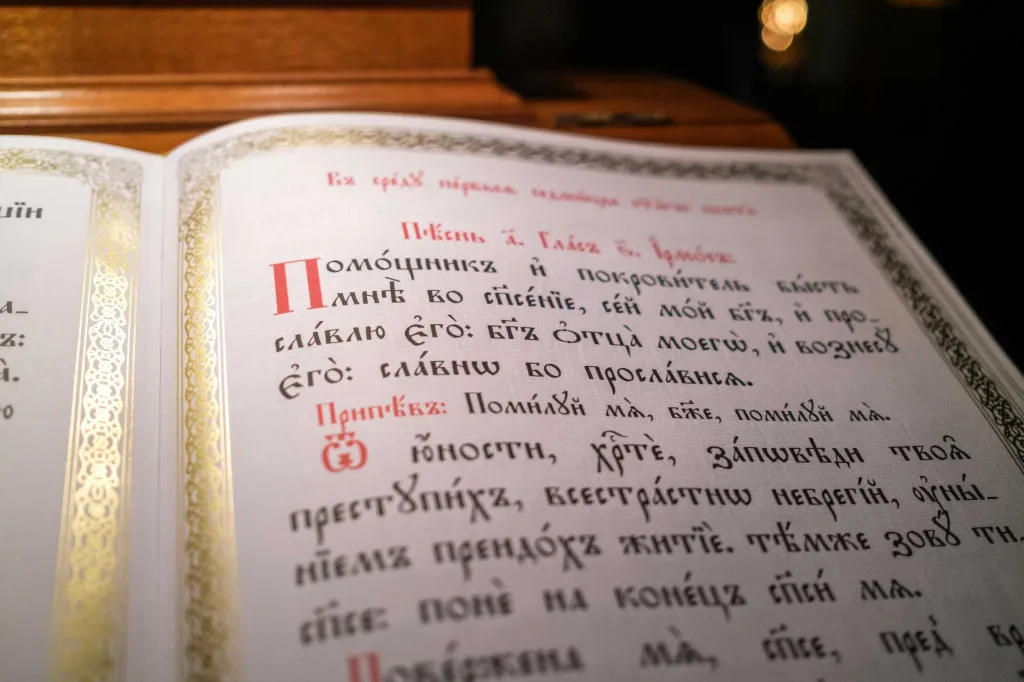 Въ сре́дꙋ пе́рвыѧ седми́цы
Пѣ́снь а҃. Гла́съ ѕ҃. І҆рмо́съ:
Помо́щникъ и҆ покрови́тель бы́сть
мнѣ̀ во сп҃се́нїе, се́й мо́й бг҃ъ, и҆ про_
сла́влю є҆го̀: бг҃ъ ѻ҆тца̀ моегѡ̀, и҆ вознесꙋ̀
є҆го̀: сла́внѡ бо просла́висѧ.
Припѣ́въ: Поми́лꙋй мѧ̀, бж҃е, поми́лꙋй мѧ̀.
Ѿ ю҆́ности, хрⷭ҇тѐ, за́пѡвѣди твоѧ҆̀
престꙋпи́хъ, всестра́стнѡ небрегі́й, ᲂу҆ны́_
нїемъ преидо́хъ житїѐ. тѣ́мже зовꙋ́ ти,
сп҃се: понѐ на коне́цъ сп҃си́ мѧ.
Пове́ржена мѧ̀, сп҃се, пред̾